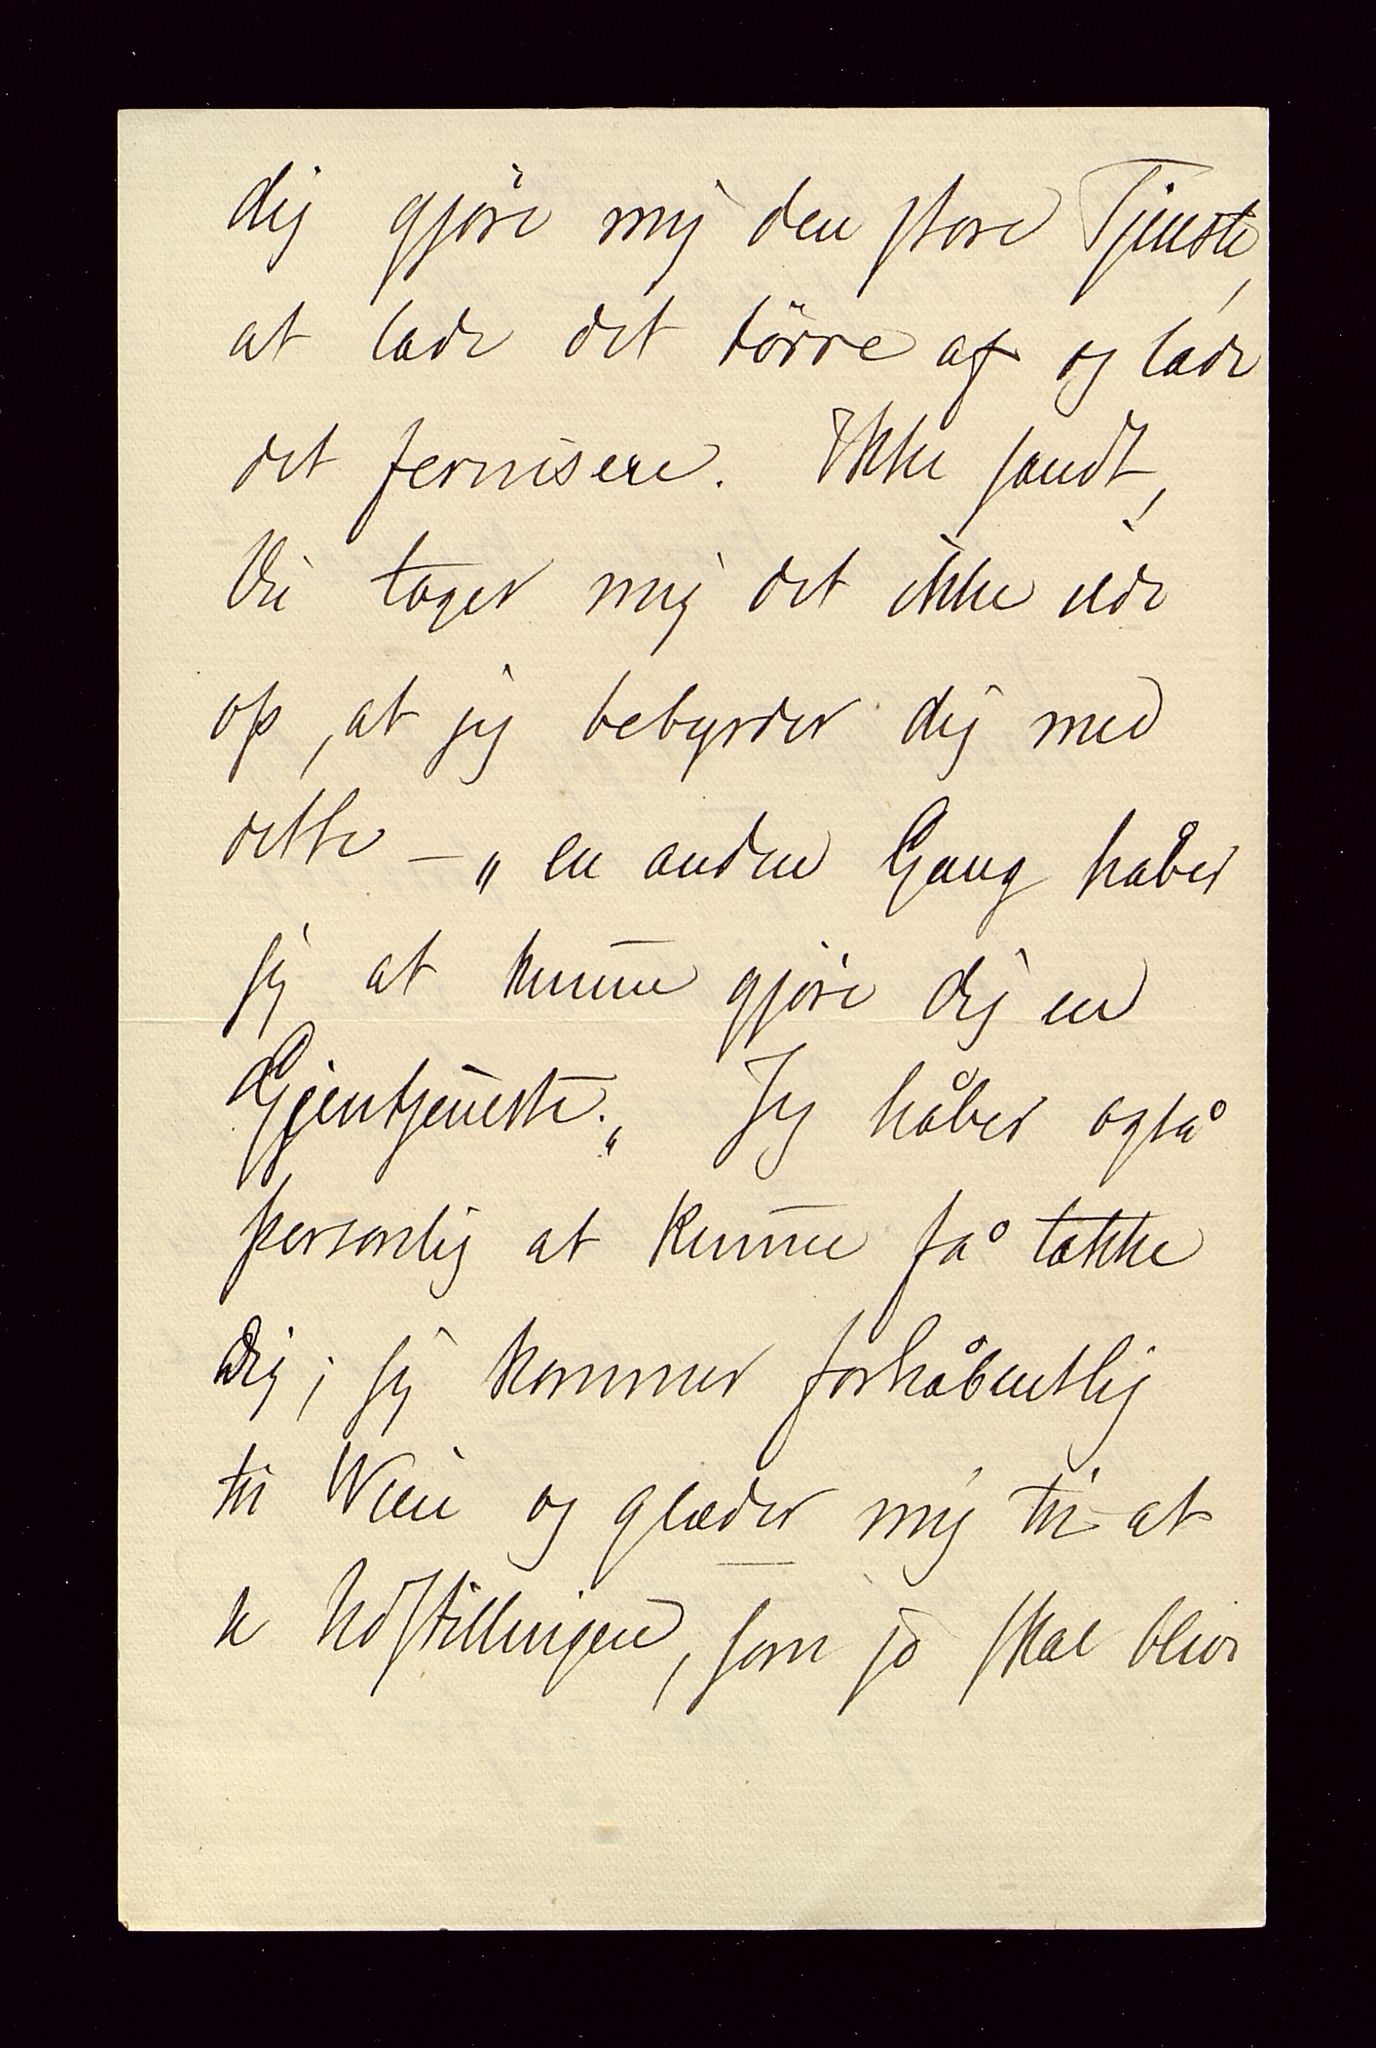 dig gjöre mig den store Tjeneste,
at lade det törre af og lade
det fernisere. Ikke sandt,
Du tager mig det ikke ilde
op, at jeg bebyrder dig med
dette – „en anden Gang håber
jeg at kunne gjöre dig en
Gjentjeneste.„ Jeg håber også
personlig at kunne få takke
dig; jeg kommer forhåbentlig
til Wien og glæder mig til at
se Udstillingen, som jo skal blive